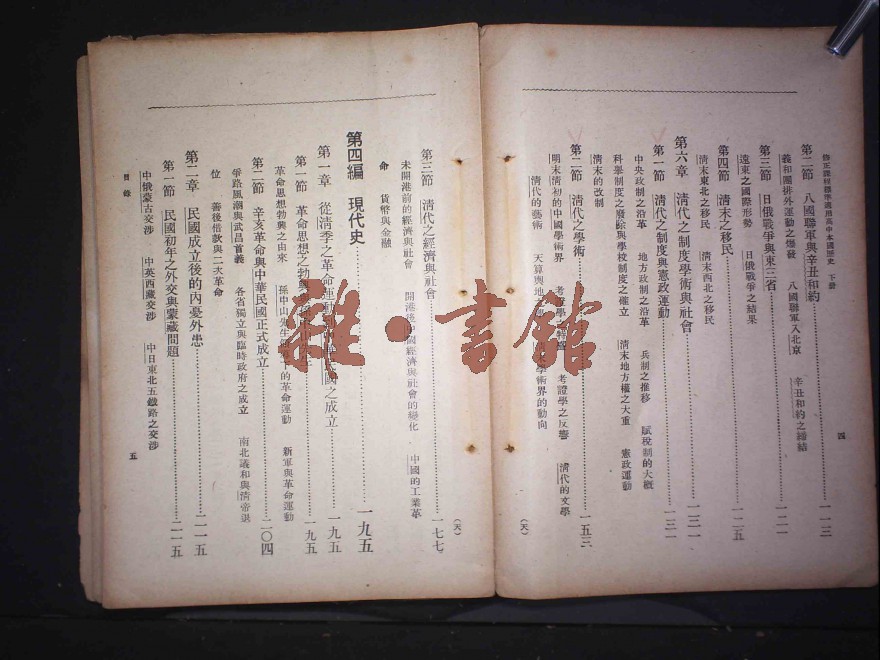 修正課程標準適用高中本國歷史 下册
四
第二節 八國聯軍與辛丑和約 一一三
義和團排外運動之爆發 八國聯軍入北京 辛丑和約之締結
第三節 日俄戰爭與東三省 一二一
遠東之國際形勢 日俄戰爭之結果
第四節 清末之移民 一二五
清末東北之移民 清末西北之移民
第六章 清代之制度學術與社會 一三一
第一節 清代之制度與憲政運動 一三一
中央政制之沿革 地方政制之沿革 兵制之推移 賦稅制的大概
科學制度之廢除與學校制度之確立 清末地方權之大重 憲政運動
清末的改制
第二節 清代之學術 一五三
明末清初的中國學術界 考證學之反響 清代的文學
清代的藝術 天算與地 學術界的動向
(天)
第三節 清代之經濟與社會 一七七
未開港前的經濟與社會 開港後中國經濟與社會的變化 中國的工業革
命 貨幣與金融
第四編 現代史 一九五
第一章 從清季之革命運動 民國之成立 一九五
第一節 革命思想之勃興 一九五
革命思想勃興之由來 孫中山先生 的革命運動 新軍與革命運動
第二節 辛亥革命與中華民國正式成立 二〇四
爭路風潮與武昌首義 各省獨立與臨時政府之成立 南北議和與清帝退
位 善後借款與二次革命
第二章 民國成立後的內憂外患 二一五
第一節 民國初年之外交與蒙藏問題 二一五
中俄蒙古交涉 中英西藏交涉 中日東北五鐵路之交涉
目錄
五
(天)
雜·書館